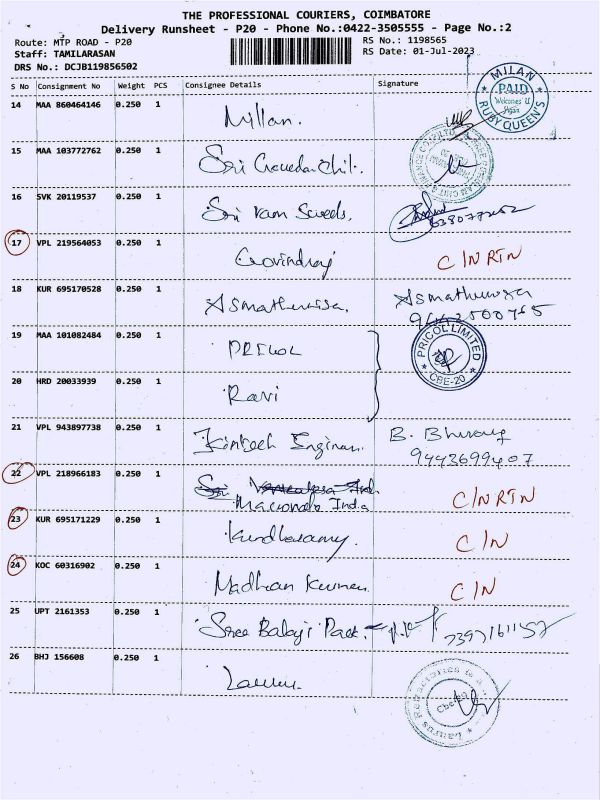 THE PROFESSIONAL COURIERS, COIMBATORE
Delivery Runsheet - P20 - Phone No.:0422-3505555 - Page No.:2
Route: MTP ROAD - P20
RS No.: 1198565
Staff: TAMILARASAN
RS Date: 01-Jul-2023
DRS No.: DCJB119856502
S No Consignment No Weight PCS Consignee Details Signature
MILAN PAID Welcomes U Again RUBY QUEEN'S
14 MAA 860464146 0.250 1 Millan.
15 MAA 103772762 0.250 1 Sri Chit.
16 SVK 20119537 0.250 1 Sri ram Seeds.
17 VPL 219564053 0.250 1 Govindraj C/N RTN
18 KUR 695170528 0.250 1 Asmathunissa. Asmathunissa
19 MAA 101082484 0.250 1 PRICOL
PRICOL LIMITED CBE-20
20 HRD 20033939 0.250 1 Ravi
21 VPL 943897738 0.250 1 B.
9443699407
22 VPL 218966183 0.250 1 Sri India C/N RTN
India
23 KUR 695171229 0.250 1 C/N
24 KOC 60316902 0.250 1 Madhan Kumar C/N
25 UPT 2161353 0.250 1 Sree Balaji Pack.
26 BHJ 156608 0.250 1